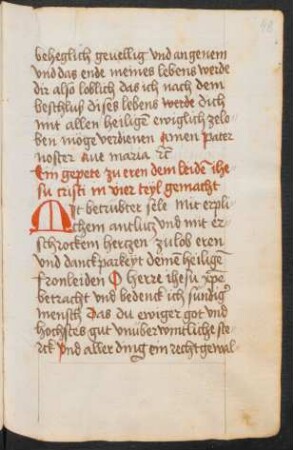 48
beheglich geuellig vnd angenem
vnd das ende meines lebens werde
dir also loblich das ich nach dem
beschluß dises lebens werde dich
mit allen heiligē ewiglich zelo
ben möge verdienen Amen Pater
noster Aue maria ⁊c̄
Ein gepete zu eren dem leidē ihe
su cristi in vier teyl gemacht
Mit betrubter sele Mit erpli
chem antlucz vnd mit er
schrockem herczen zu lob eren
vnd danckparkeyt deinē heiligē
fronleiden O herre ihesu xp̄e
betracht vnd bedenck ich sundig
mensch Das du ewiger got vnd
hochstes gut vnüberwintliche ste
rck Vnd aller ding ein recht gewal-